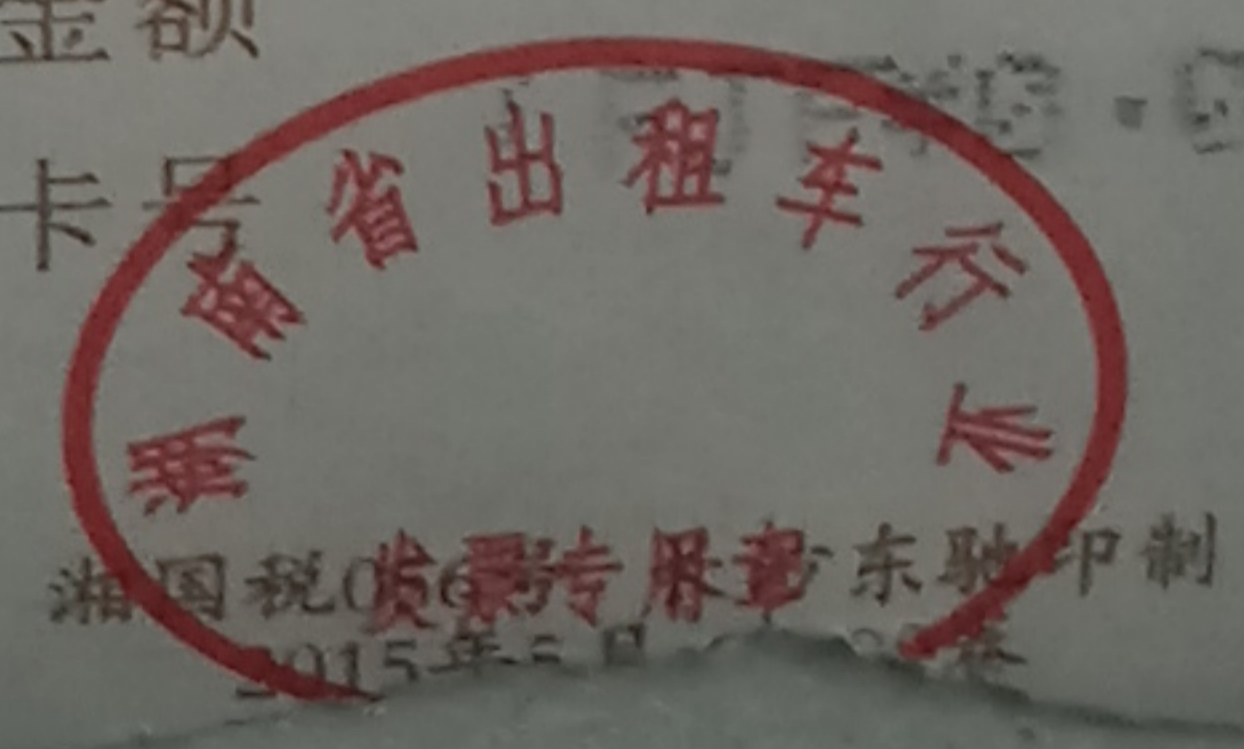 金额
卡号
湖南省出租车行业
发票专用章
湘国税 东驰印制
2015年